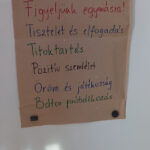 Figyeljünk egymásra!
Tisztelet és elfogadás
Titoktartás
Pozitív szemlélet
Öröm és játékosság
Bátor próbálkozás